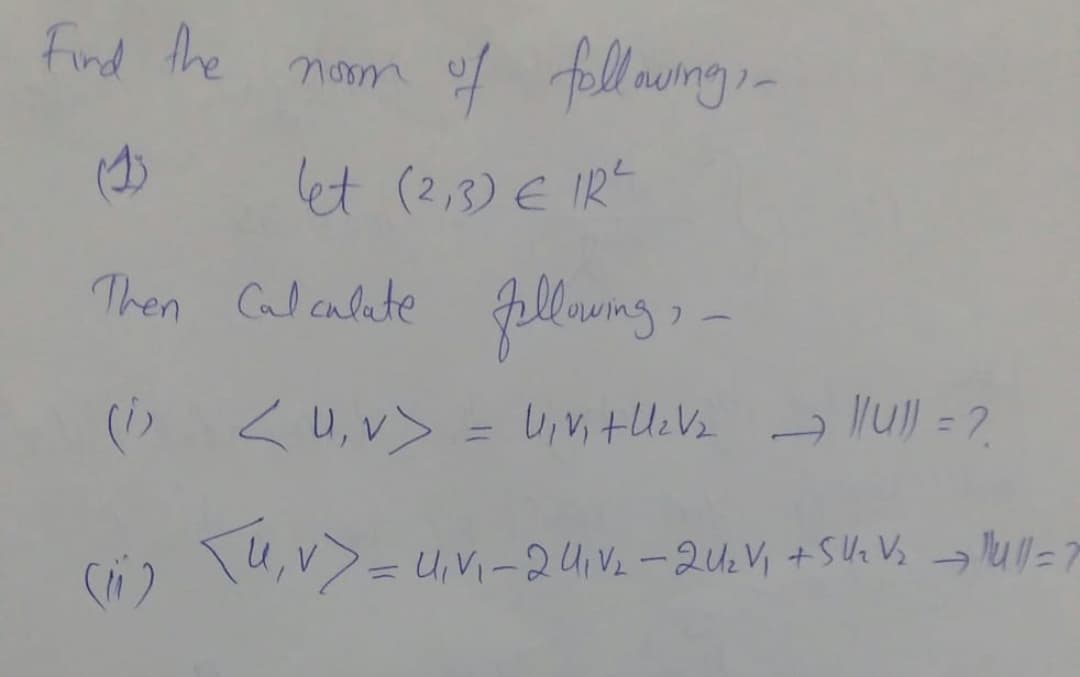 Find the norm of following:-
(1) let (2,3) ∈ IR²
Then Calculate following:-
(i) <u,v> = u₁v₁+u₂v₂ → ||u|| = ?
(ii) <u,v> = u₁v₁-2u₁v₂-2u₂v₁+5u₂v₂ → ||u|| = ?